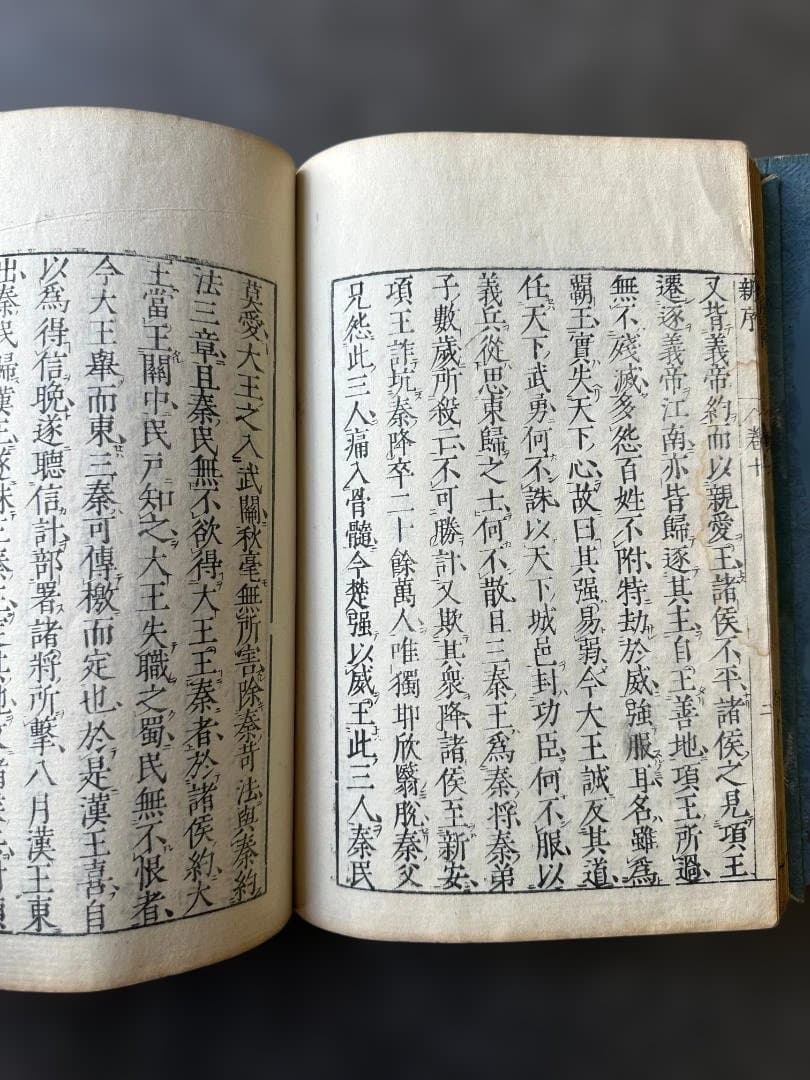 新序　卷十　二
又背義帝約而以親愛王諸侯不平諸侯之見項王
遷逐義帝江南亦皆歸逐其主自王善地項王所過
無不殘滅多怨百姓不附特劫於威強服耳名雖為
覇王實失天下心故曰其强易弱今大王誠反其道
任天下武勇何不誅以天下城邑封功臣何不服以
義兵從思東歸之士何不散且三秦王爲秦將秦弟
子數歲所殺亡不可勝計又欺其衆降諸侯至新安
項王詐坑秦降卒二十餘萬人唯獨邯欣翳脫秦父
兄怨此三人痛入骨髓今楚强以威王此三人秦民
莫愛大王之入武關秋毫無所害除秦苛法與秦約
法三章且秦民無不欲得大王王秦者於諸侯約大
王當王關中民戸知之大王失職之蜀民無不恨者
今大王舉而東三秦可傳檄而定也於是漢王喜自
以爲得信晚遂聽信計部署諸將所擊八月漢王東
出秦民歸漢王遂誅